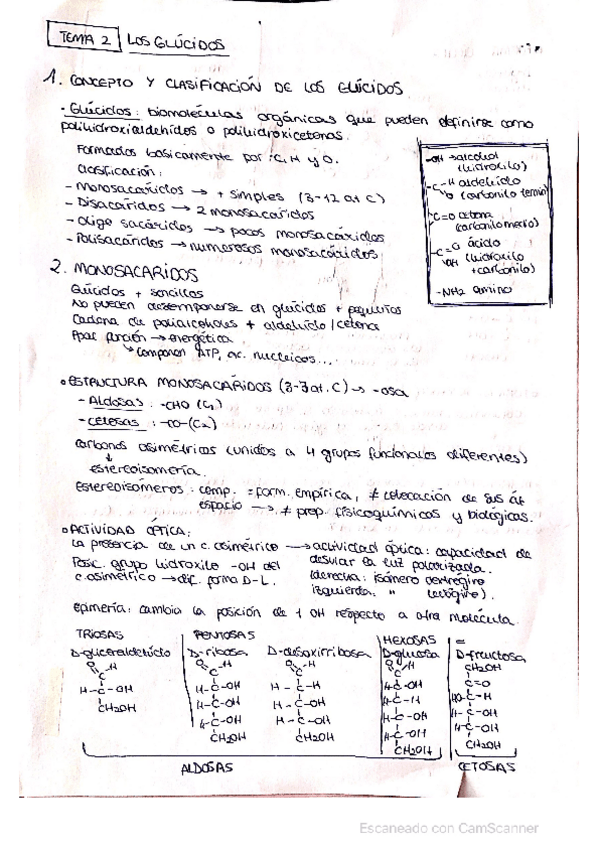 TEMA 2 LOS GLÚCIDOS
1. CONCEPTO Y CLASIFICACIÓN DE LOS GLÚCIDOS
- Glúcidos: biomoléculas orgánicas que pueden definirse como
polihidroxialdehídos o polihidroxicetonas.
Formados básicamente por: C, H y O.
Clasificación:
- Monosacáridos → + simples (3-12 at C)
- Disacáridos → 2 monosacáridos
- Oligosacáridos → pocos monosacáridos
- Polisacáridos → numerosos monosacáridos
-OH alcohol
(hidroxilo)
-C-H aldehído
O (carbonilo
-C=O
-C=O ácido
OH (hidroxilo
+carbonilo)
-NH2 amino
2. MONOSACÁRIDOS
Glúcidos + sencillos
No pueden descomponerse en glúcidos + pequeños
Cadena de polialcoholes + aldehído/cetona
función → energética
componen ATP, ác. nucleicos...
• ESTRUCTURA MONOSACÁRIDOS (3-7 at. C) → -osa
- Aldosas: -CHO (C1)
- Cetosas: -CO- (C2)
Carbonos asimétricos (unidos a 4 grupos funcionales diferentes)
↓
estereoisomería.
Estereoisómeros: comp. = form. empírica, ≠ colocación de sus át
espacio → ≠ prop. fisicoquímicas y biológicas.
• ACTIVIDAD ÓPTICA:
La presencia de un c. asimétrico → actividad óptica: capacidad de
desviar la luz polarizada.
Posic. grupo hidroxilo -OH del
c. asimétrico → dif. forma D-L.
(derecha: isómero dextrógiro
izquierda: " levógiro).
epimería: cambia la posición de 1 OH respecto a otra molécula.
TRIOSAS PENTOSAS HEXOSAS =
D-gliceraldehído D-ribosa D-desoxirribosa D-glucosa D-fructosa
O H O H O H O H CH2OH
C C C C C=O
H-C-OH H-C-OH H-C-H H-C-OH HO-C-H
CH2OH H-C-OH H-C-OH H-C-OH
H-C-OH H-C-OH H-C-OH H-C-OH
CH2OH CH2OH H-C-OH CH2OH
CH2OH
ALDOSAS CETOSAS
Escaneado con CamScanner